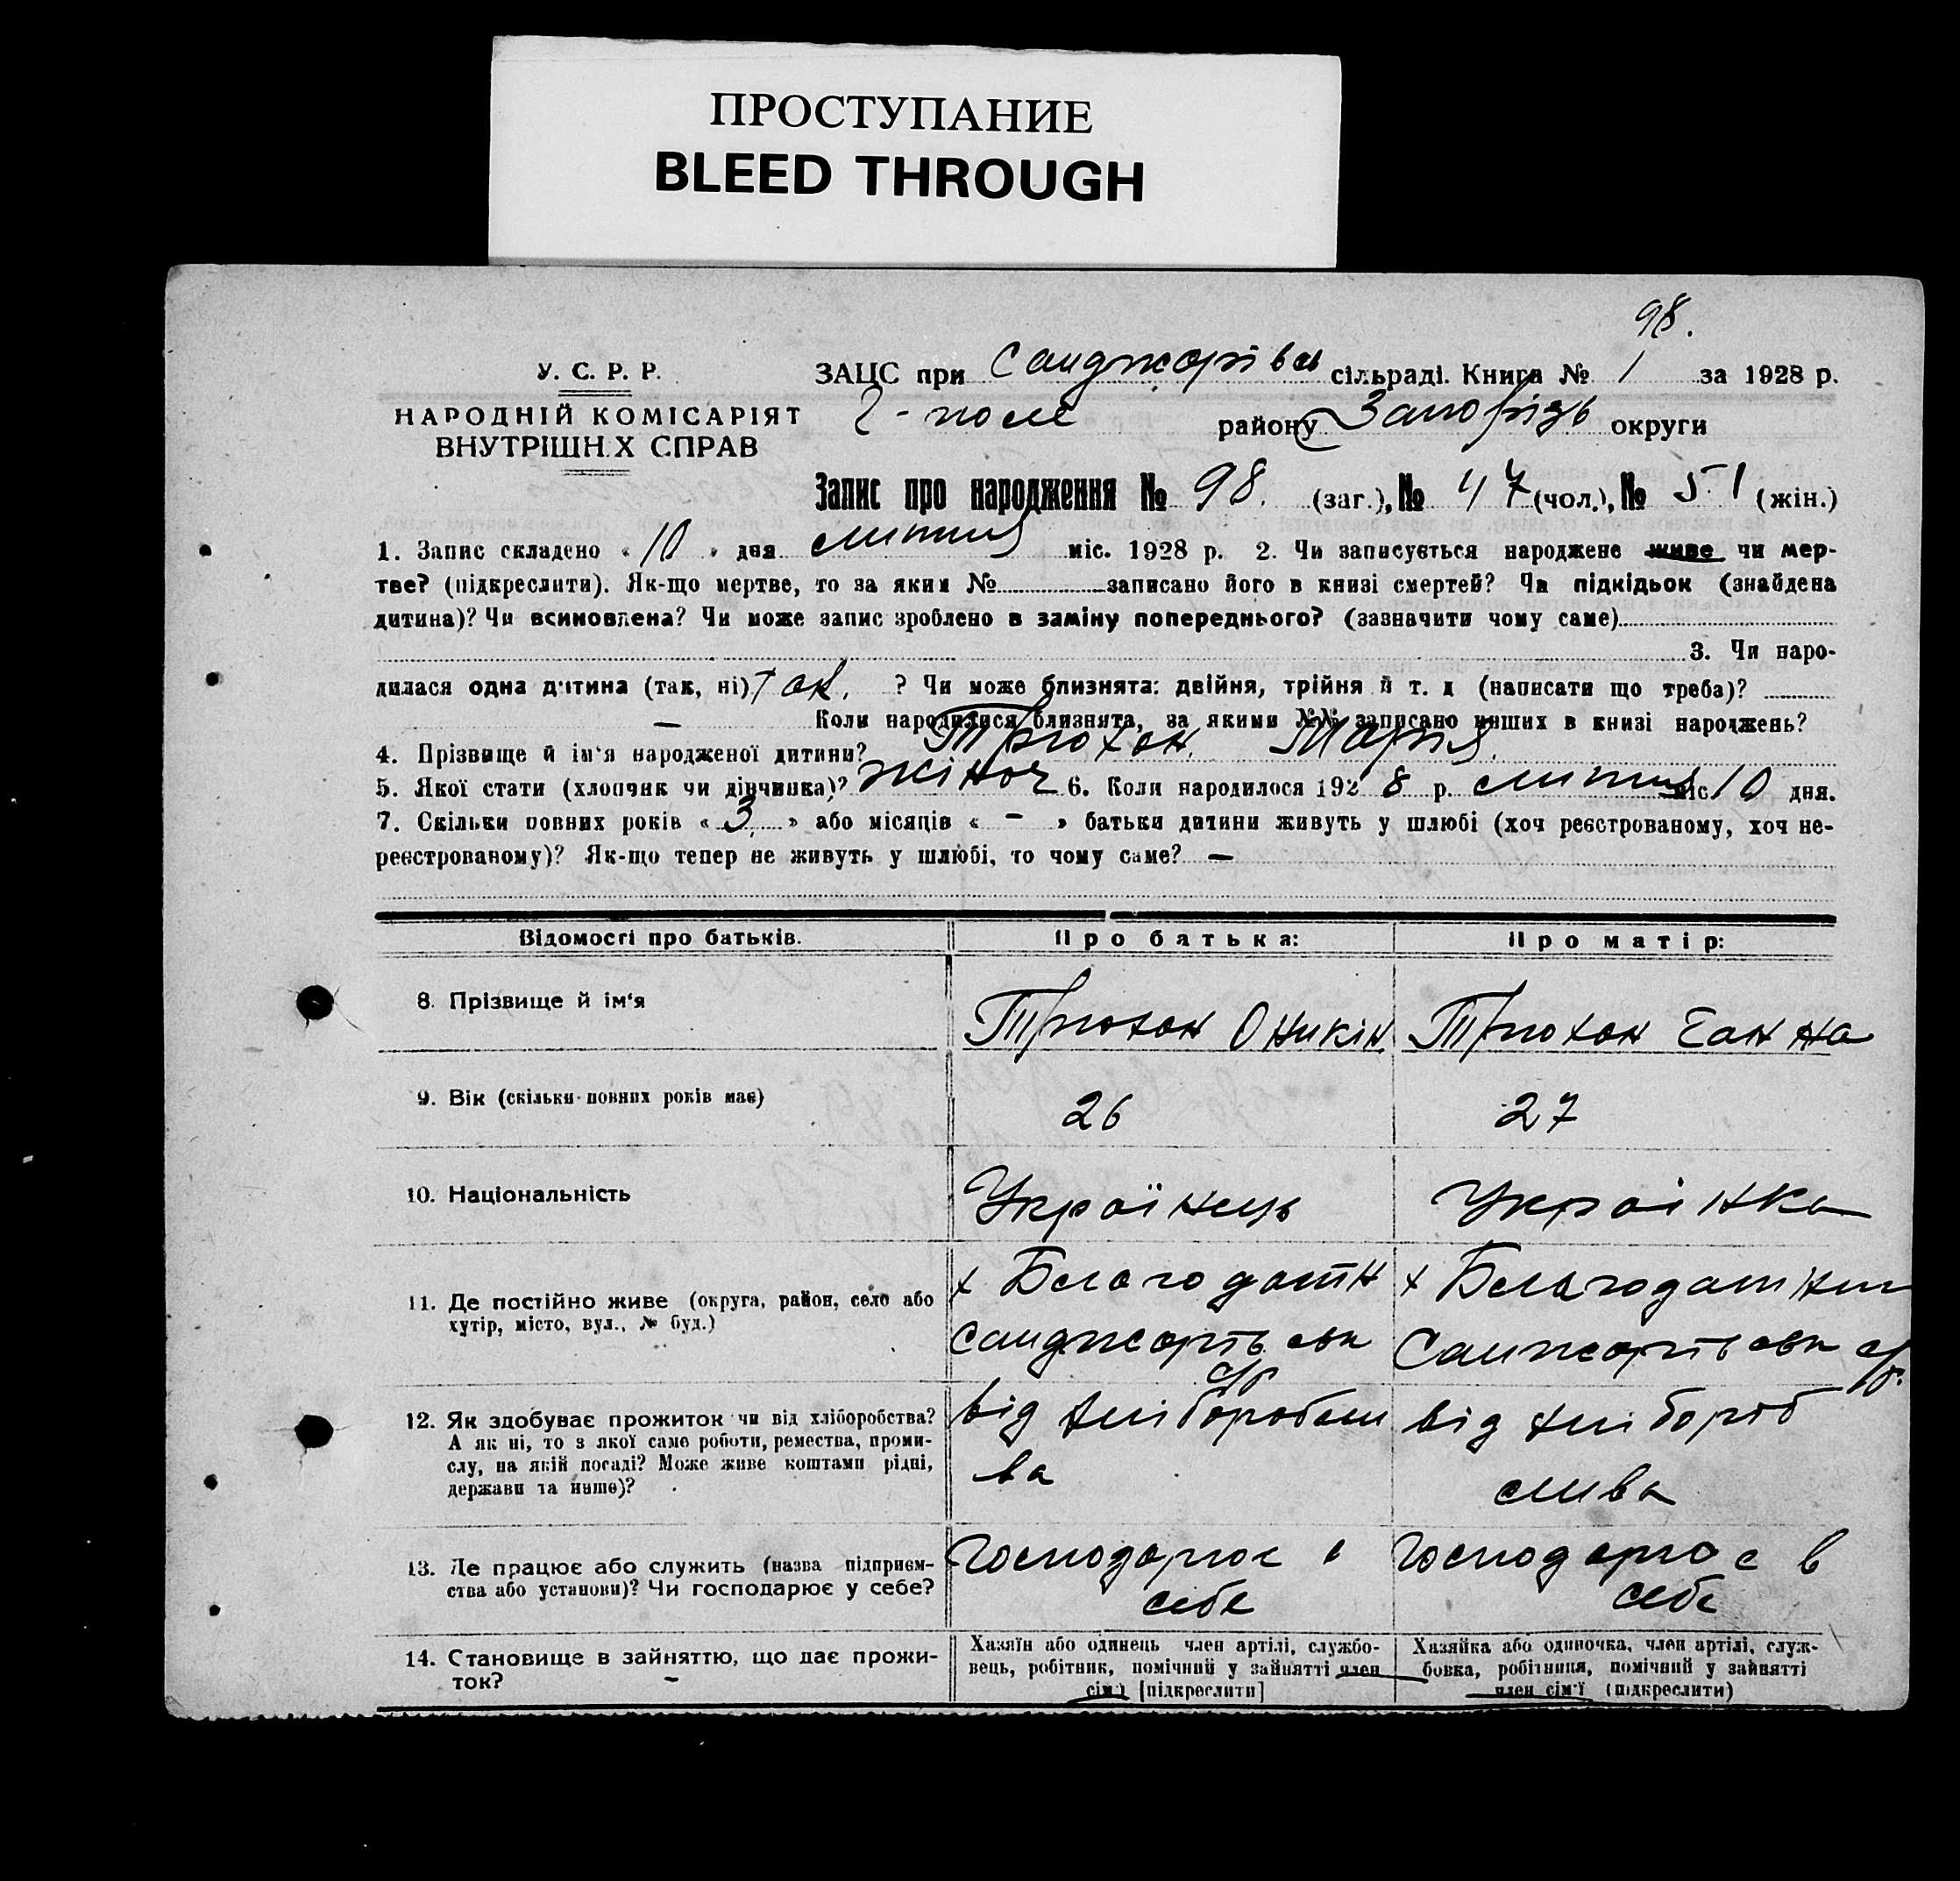 ПРОСТУПАНИЕ
BLEED THROUGH
98.
У. С. Р. Р.
НАРОДНІЙ КОМІСАРІЯТ
ВНУТРІШН.Х СПРАВ
ЗАЦС при Санджарівсь сільраді. Книга № 1 за 1928 р.
Г-поле району Запорізь округи
Запис про народження № 98. (заг.), № 47 (чол.), № 51 (жін.)
1. Запис складено « 10 » дня липня міс. 1928 р. 2. Чи записується народжене живе чи мер-
тве? (підкреслити). Як-що мертве, то за яким № записано його в книзі смертей? Чи підкідьок (знайдена
дитина)? Чи всиновлена? Чи може запис зроблено в заміну попереднього? (зазначити чому саме)
3. Чи наро-
дилася одна дитина (так, ні) так. ? Чи може близнята: двійня, трійня й т. д (написати що треба)?
— Коли народилися близнята, за якими №№ записано инших в книзі народжень?
4. Прізвище й ім'я народженої дитини? Трюхан Марія.
5. Якої стати (хлопчик чи дівчинка)? жіноч 6. Коли народилося 1928 р. липня міс 10 дня.
7. Скільки повних років « 3 » або місяців « - » батьки дитини живуть у шлюбі (хоч реєстрованому, хоч не-
реєстрованому)? Як-що тепер не живуть у шлюбі, то чому саме? —
Відомості про батьків. Про батька: Про матір:
8. Прізвище й ім'я Трюхан Оникін Трюхан Ганна
9. Вік (скільки повних років має) 26 27
10. Національність Українець Українка
11. Де постійно живе (округа, район, село або
хутір, місто, вул., № буд.)
х Благодатн х Благодатни
Санджарівськ с/р Санжарівськ с/р.
12. Як здобуває прожиток чи від хліборобства?
А як ні, то з якої саме роботи, ремества, проми-
слу, на якій посаді? Може живе коштами рідні,
держави та инше)?
від хліборобст від хлібороб
ва ства
13. Де працює або служить (назва підприєм-
ства або установи)? Чи господарює у себе?
Господарює в Господарює в
себе себе
14. Становище в зайняттю, що дає прожи-
ток? –
Хазяїн або одинець член артілі, службо-
вець, робітник, помічний у зайнятті член
сім'ї [підкреслити]
Хазяйка або одиночка, член артілі, служ-
бовка, робітниця, помічний у зайнятті
член сім'ї (підкреслити)